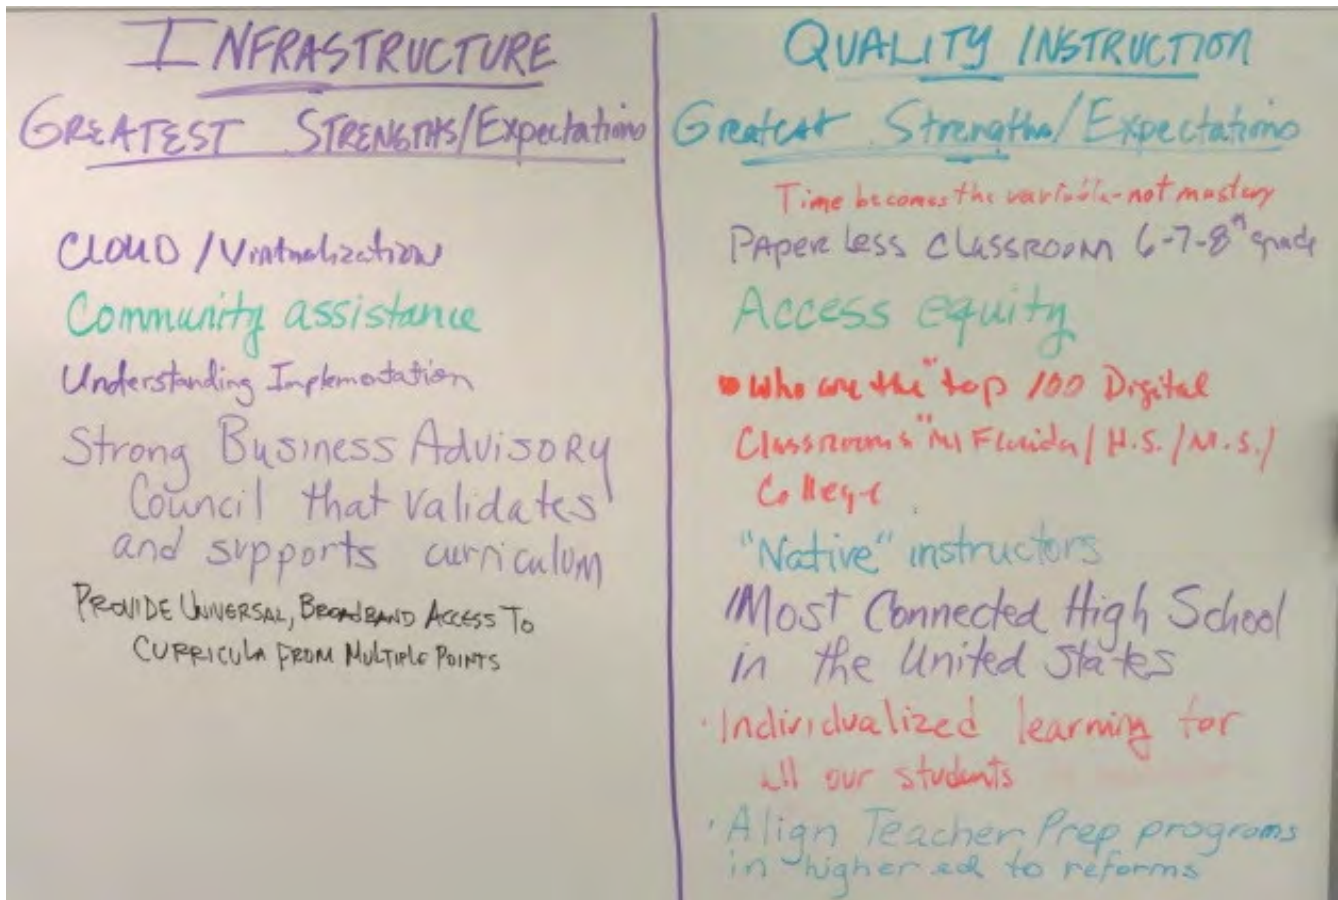 INFRASTRUCTURE
GREATEST STRENGTHS/Expectations
CLOUD/Virtualization
Community assistance
Understanding Implementation
Strong Business Advisory
Council that validates
and supports curriculum
PROVIDE UNIVERSAL, BROADBAND ACCESS TO
CURRICULA FROM MULTIPLE POINTS
QUALITY INSTRUCTION
Greatest Strengths/Expectations
Time becomes the variable-not mastery
PAPERLESS CLASSROOM 6-7-8th grade
Access equity
• Who are the "top 100 Digital
Classrooms" in Florida/H.S./M.S./
College
"Native" instructors
Most Connected High School
in the United States
· Individualized learning for
all our students
· Align Teacher Prep programs
in higher ed to reforms